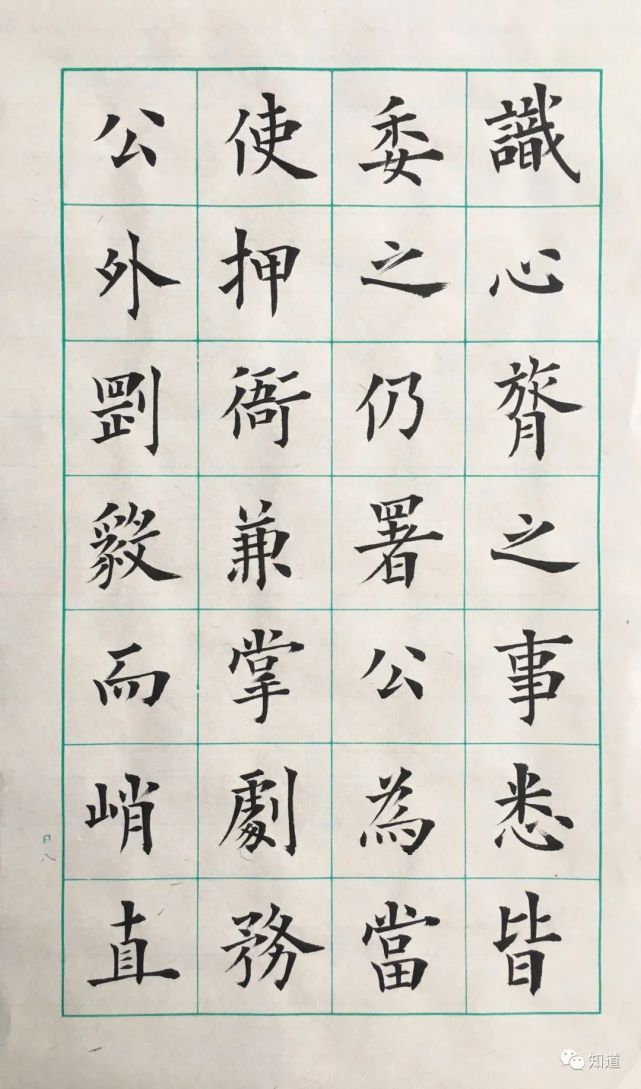 識心膂之事悉皆
委之仍署公為當
使押衙兼掌劇務
公外剛毅而峭直
卅八
知道